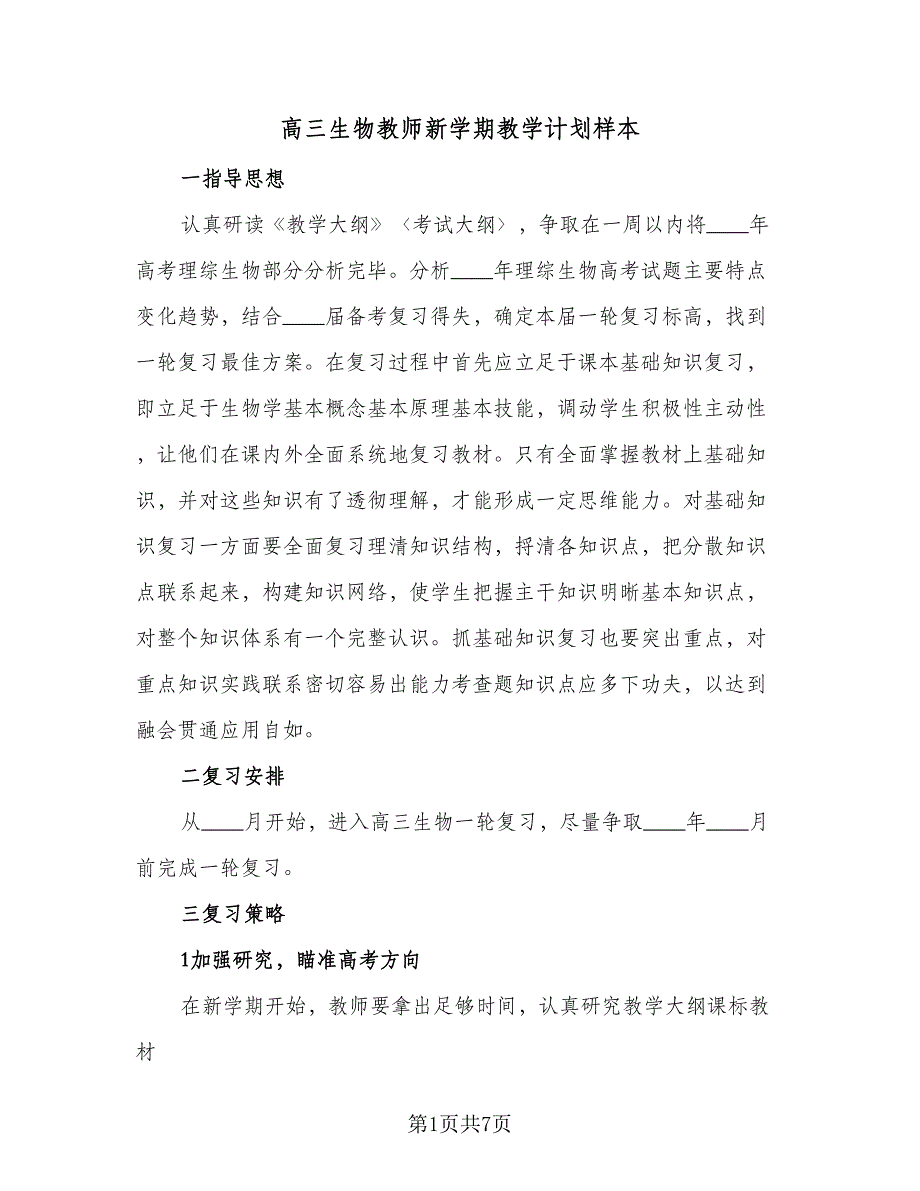 高三生物教师新学期教学计划样本
一指导思想
认真研读《教学大纲》〈考试大纲〉，争取在一周以内将____年
高考理综生物部分分析完毕。分析____年理综生物高考试题主要特点
变化趋势，结合____届备考复习得失，确定本届一轮复习标高，找到
一轮复习最佳方案。在复习过程中首先应立足于课本基础知识复习，
即立足于生物学基本概念基本原理基本技能，调动学生积极性主动性
，让他们在课内外全面系统地复习教材。只有全面掌握教材上基础知
识，并对这些知识有了透彻理解，才能形成一定思维能力。对基础知
识复习一方面要全面复习理清知识结构，捋清各知识点，把分散知识
点联系起来，构建知识网络，使学生把握主干知识明晰基本知识点，
对整个知识体系有一个完整认识。抓基础知识复习也要突出重点，对
重点知识实践联系密切容易出能力考查题知识点应多下功夫，以达到
融会贯通应用自如。
二复习安排
从____月开始，进入高三生物一轮复习，尽量争取____年____月
前完成一轮复习。
三复习策略
1加强研究，瞄准高考方向
在新学期开始，教师要拿出足够时间，认真研究教学大纲课标教
材
第1页共7页